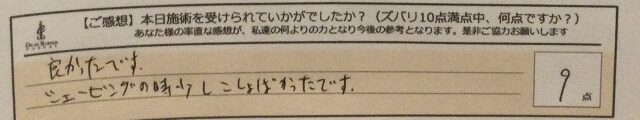 【ご感想】本日施術を受けられていかがでしたか？（ズバリ10点満点中、何点ですか？）
あなた様の率直な感想が、私達の何よりの力となり今後の参考となります。是非ご協力お願いします
良かったです。
シェービングの時少しこしょばかったです。
9
点